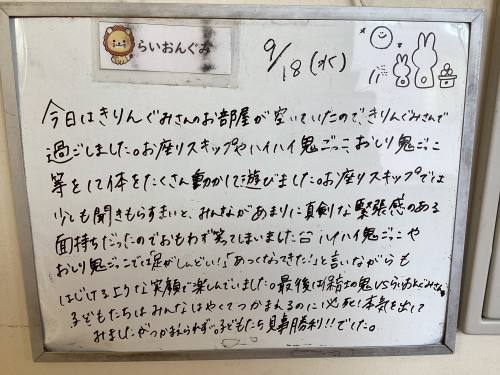 らいおんぐみ
9/18(水)
今日はきりんぐみさんのお部屋が空いていたので、きりんぐみさんで
過ごしました。お座りスキップやハイハイ鬼ごっこ、おしり鬼ごっこ
等をして体をたくさん動かして遊びました。お座りスキップでは
少しも聞きもらすまいと、みんながあまりに真剣な緊張感のある
面持ちだったのでおもわず笑ってしまいました ハイハイ鬼ごっこや
おしり鬼ごっこでは「足がしんどい!」「あつくなってきた!」と言いながらも
はじけるような笑顔で楽しんでいました。最後は保育士の鬼VSらいおんぐみさん。
子どもたちはみんなはやくてつかまえるのに必死!本気を出して
みましたがつかまえられず。子どもたち見事勝利!!でした。